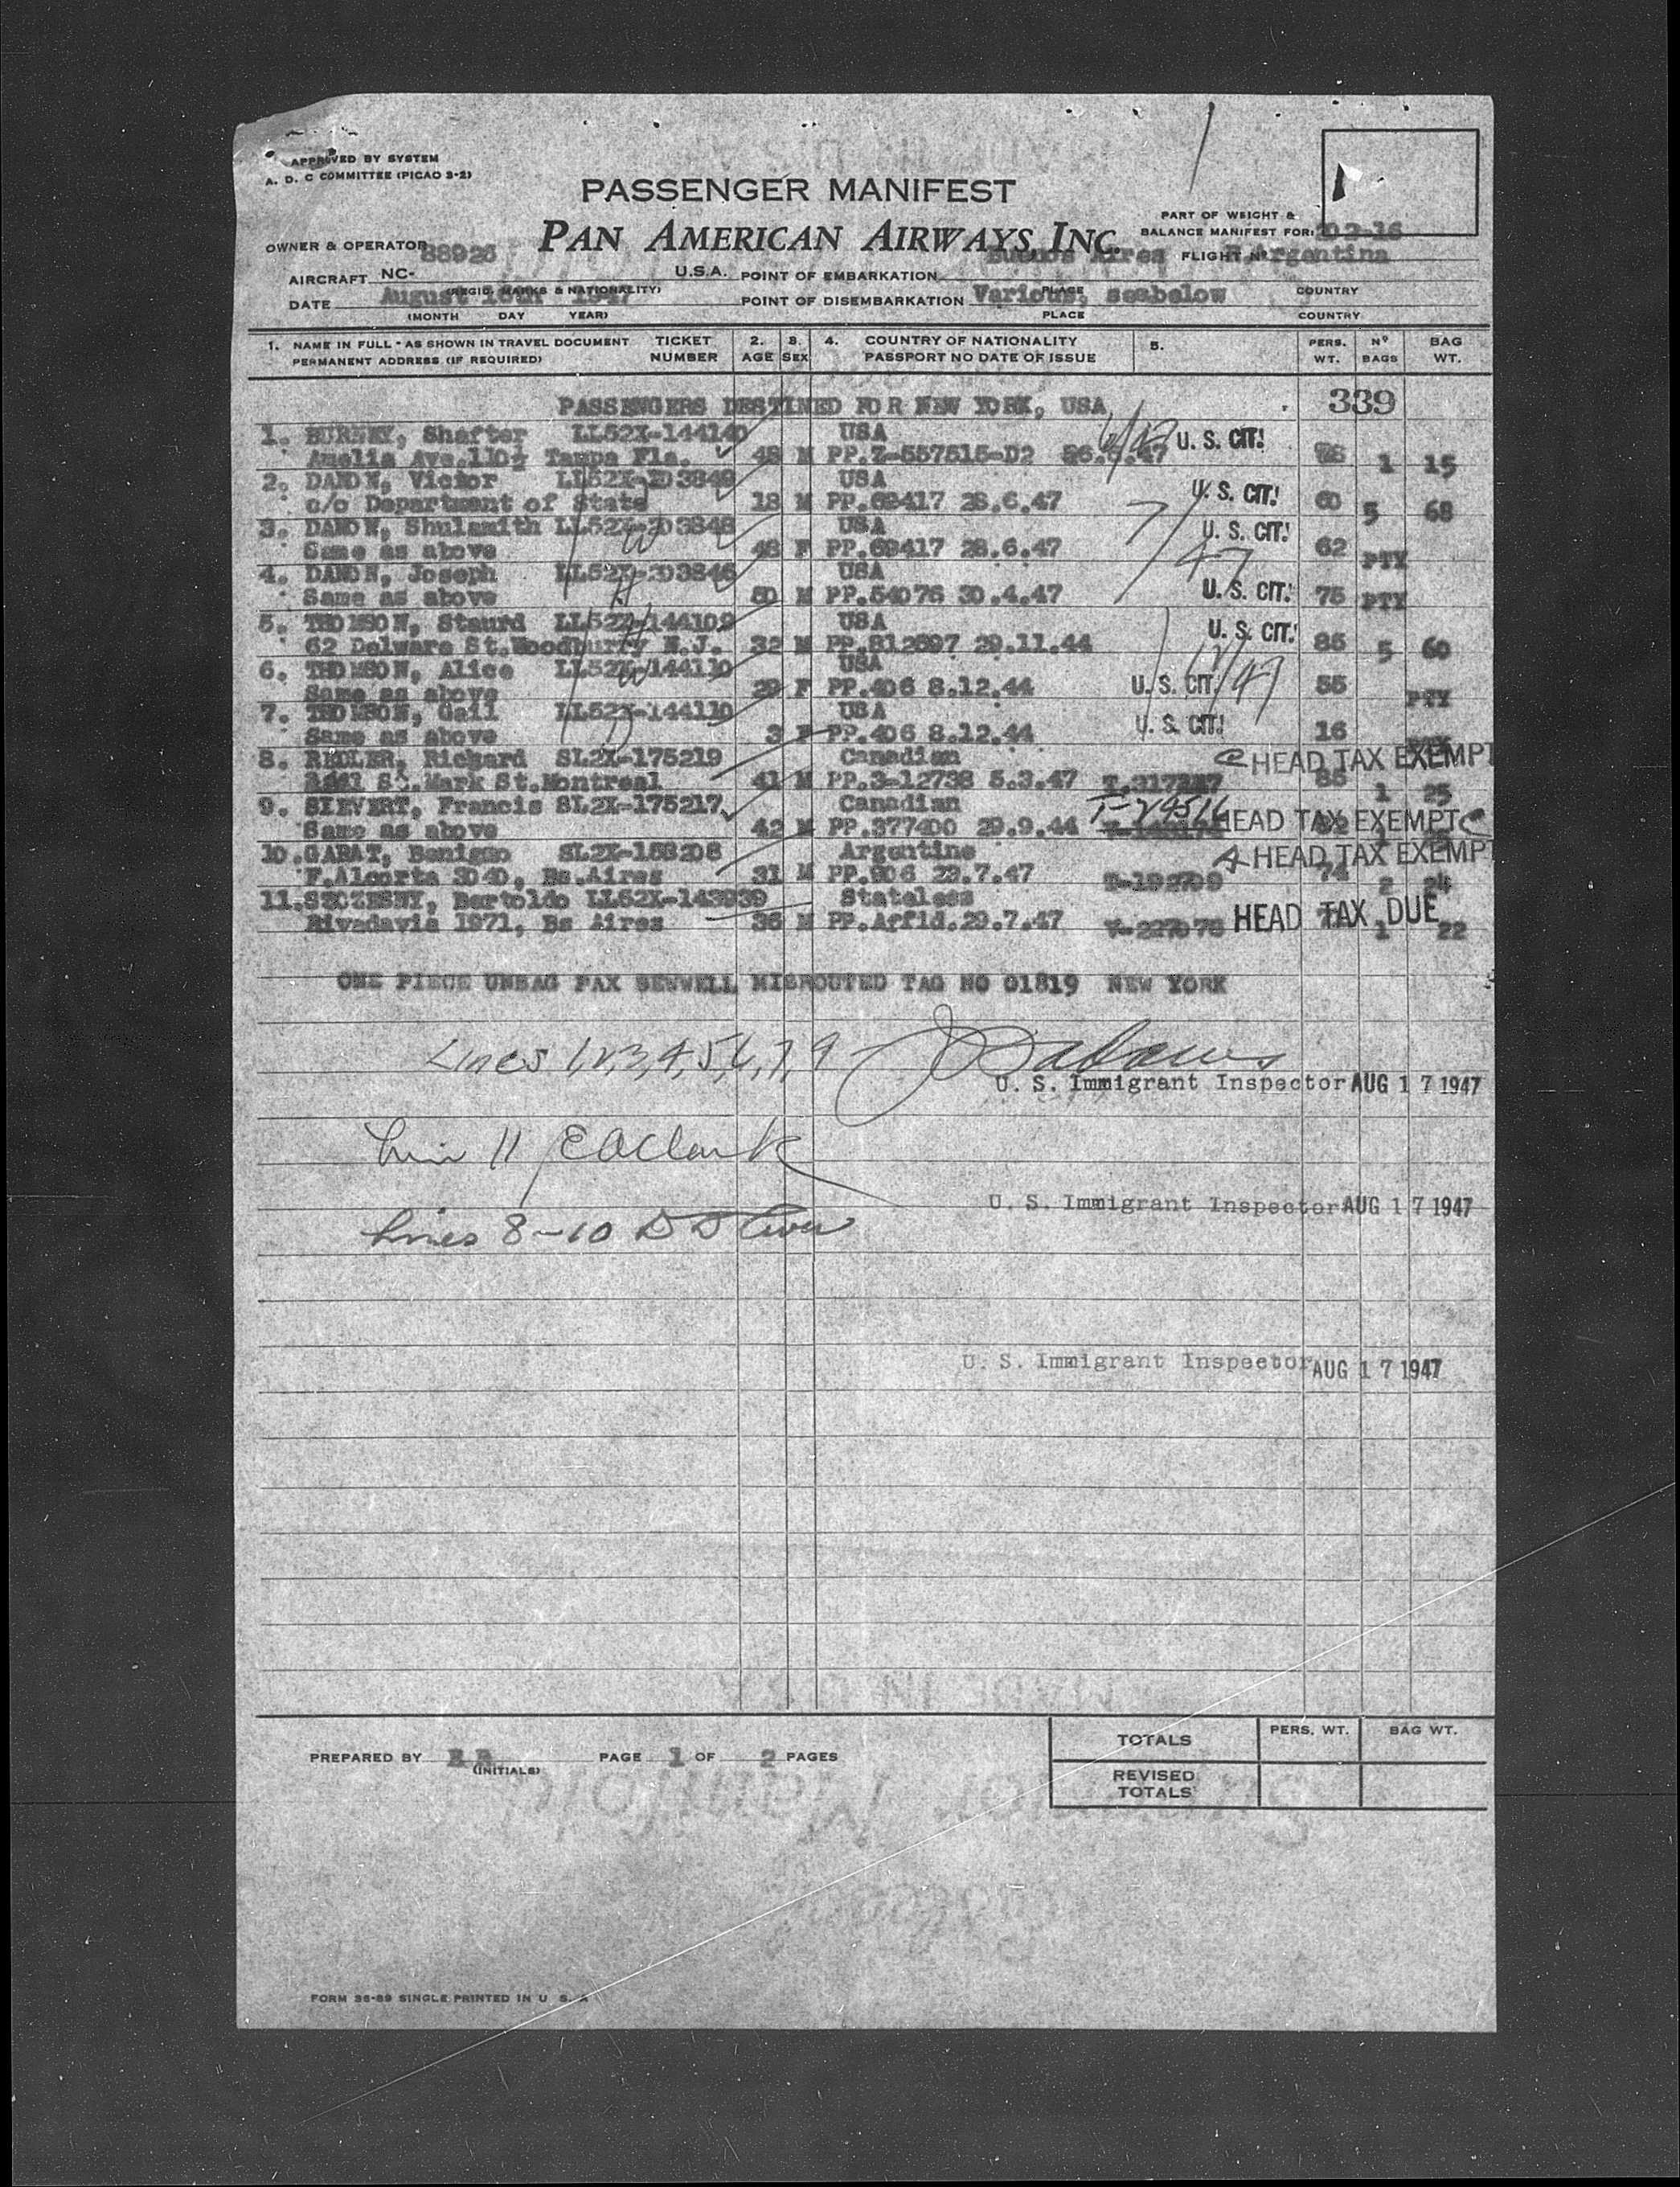 APPROVED BY SYSTEM
A. D. C COMMITTEE (PICAO 3-2)
PASSENGER MANIFEST
PART OF WEIGHT &
BALANCE MANIFEST FOR: 202-16
OWNER & OPERATOR
PAN AMERICAN AIRWAYS INC.
88926
Buenos Aires
FLIGHT Nº
Argentina
AIRCRAFT NC- U.S.A. POINT OF EMBARKATION
(REGIS. MARKS & NATIONALITY) PLACE COUNTRY
DATE August 16th 1947 POINT OF DISEMBARKATION Various, seabelow
(MONTH DAY YEAR) PLACE COUNTRY
1. NAME IN FULL - AS SHOWN IN TRAVEL DOCUMENT TICKET 2. 3. 4. COUNTRY OF NATIONALITY 5. PERS. Nº BAG
PERMANENT ADDRESS (IF REQUIRED) NUMBER AGE SEX PASSPORT NO DATE OF ISSUE WT. BAGS WT.
PASSENGERS DESTINED FOR NEW YORK, USA 339
1. BURNEY, Shafter LL52X-144140 USA U. S. CIT!
Amelia Ave.110½ Tampa Fla. 48 M PP.Z-557515-D2 1 15
2. DANON, Victor LL52X-203849 USA U. S. CIT!
c/o Department of State 18 M PP.69417 28.6.47 60 5 68
3. DANON, Shulamith LL52X-203848 USA U. S. CIT!
Same as above 48 F PP.69417 28.6.47 62 PTY
4. DANON, Joseph LL52X-203846 USA
Same as above 50 M PP.54076 30.4.47 U. S. CIT! 75 PTY
5. THOMSON, Staurd LL52X-144109 USA U. S. CIT!
62 Delware St.Woodburry N.J. 32 M PP.812697 29.11.44 86 5 60
6. THOMSON, Alice LL52X-144110 USA
Same as above 29 F PP.406 8.12.44 U. S. CIT! 55 PTY
7. THOMSON, Gail LL52X-144110 USA
Same as above 3 F PP.406 8.12.44 U. S. CIT! 16
8. REDLER, Richard SL2X-175219 Canadian C HEAD TAX EXEMPT
St.Mark St.Montreal 41 M PP.3-12738 5.3.47 1 25
9. SIEVERT, Francis SL2X-175217 Canadian T-24516 HEAD TAX EXEMPT C
Same as above 42 M PP.377400 29.9.44
10.GABAT, Benigno SL2X-158208 Argentine A HEAD TAX EXEMPT
F.Alcorta 3040, Bs.Aires 31 M PP.906 23.7.47 74 2 24
11.SZCZESNY, Bertoldo LL52X-143939 Stateless
Rivadavia 1971, Bs Aires 36 M PP.Affid.29.7.47 V-227078 HEAD TAX DUE 1 22
ONE PIECE UNBAG PAX SEWWELL MISROUTED TAG NO 01819 NEW YORK
Lines 1,2,3,4,5,6,7,9
U. S. Immigrant Inspector AUG 17 1947
Line 11 E A Clark
U. S. Immigrant Inspector AUG 17 1947
Lines 8-10
U. S. Immigrant Inspector AUG 17 1947
TOTALS PERS. WT. BAG WT.
PREPARED BY (INITIALS) PAGE 1 OF 2 PAGES
REVISED TOTALS
FORM 36-89 SINGLE PRINTED IN U S A